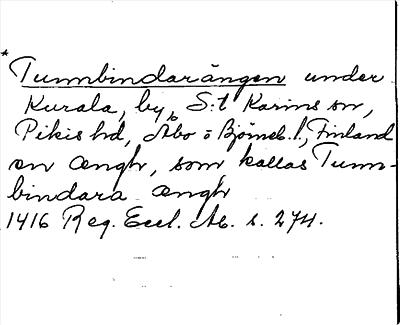 * Tunnbindarängen under
Kurala, by, S:t Karins sn,
Pikis hd, Åbo o Björneb. l., Finland
en ængh, som kallas Tunn-
bindara ængh
1416 Reg. Eccl. Ab. s. 274.